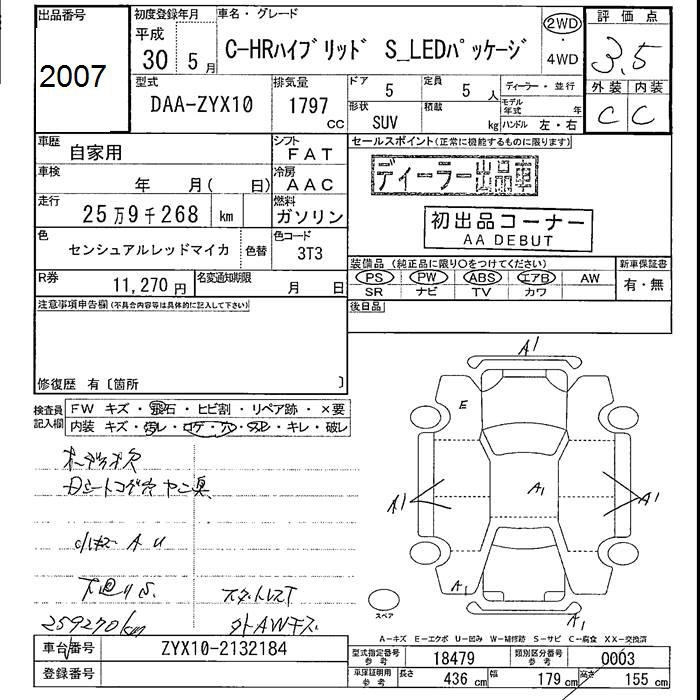 出品番号
2007
初度登録年月
平成
30年 5月
車名・グレード
C-HRハイブリッド S_LEDパッケージ
2WD
・
4WD
評価点
3.5
外装 内装
C C
型式
DAA-ZYX10
排気量
1797
cc
ドア
5
定員
5人
ディーラー・並行
モデル年式 年
形状
SUV
積載
kg
ハンドル 左・右
車歴
自家用
シフト
FAT
車検
年 月( 日)
冷房
AAC
走行
25万9千268 km
燃料
ガソリン
色
センシュアルレッドマイカ
色替
色コード
3T3
R券
11,270円
名変通知期限
月 日
セールスポイント(正常に機能するものに限ります)
ディーラー出品車
初出品コーナー
AA DEBUT
装備品(純正品に限り○をつけてください)
PS PW ABS エアB AW
SR ナビ TV カワ
新車保証書
有・無
後日品
注意事項申告欄(不具合内容等は具体的に記入して下さい)
修復歴 有〔箇所 〕
検査員記入欄
FW キズ・飛石・ヒビ割・リペア跡・×要
内装 キズ・汚レ・コゲ・穴・スレ・キレ・破レ
オーディオ欠
Dシートコゲ穴 ヤニ臭
A U
下廻りS
259270km
スタッドレスT
外AWキズ
A1
E
A1
A1
A1
A1
A1
スペア
A-キズ E-エクボ U-凹み W-補修跡 S-サビ C-腐食 XX-交換済
車台番号
ZYX10-2132184
登録番号
型式指定番号
参考
18479
類別区分番号
参考
0003
車庫証明用
参考
長さ 436 cm
幅 179 cm
高さ 155 cm